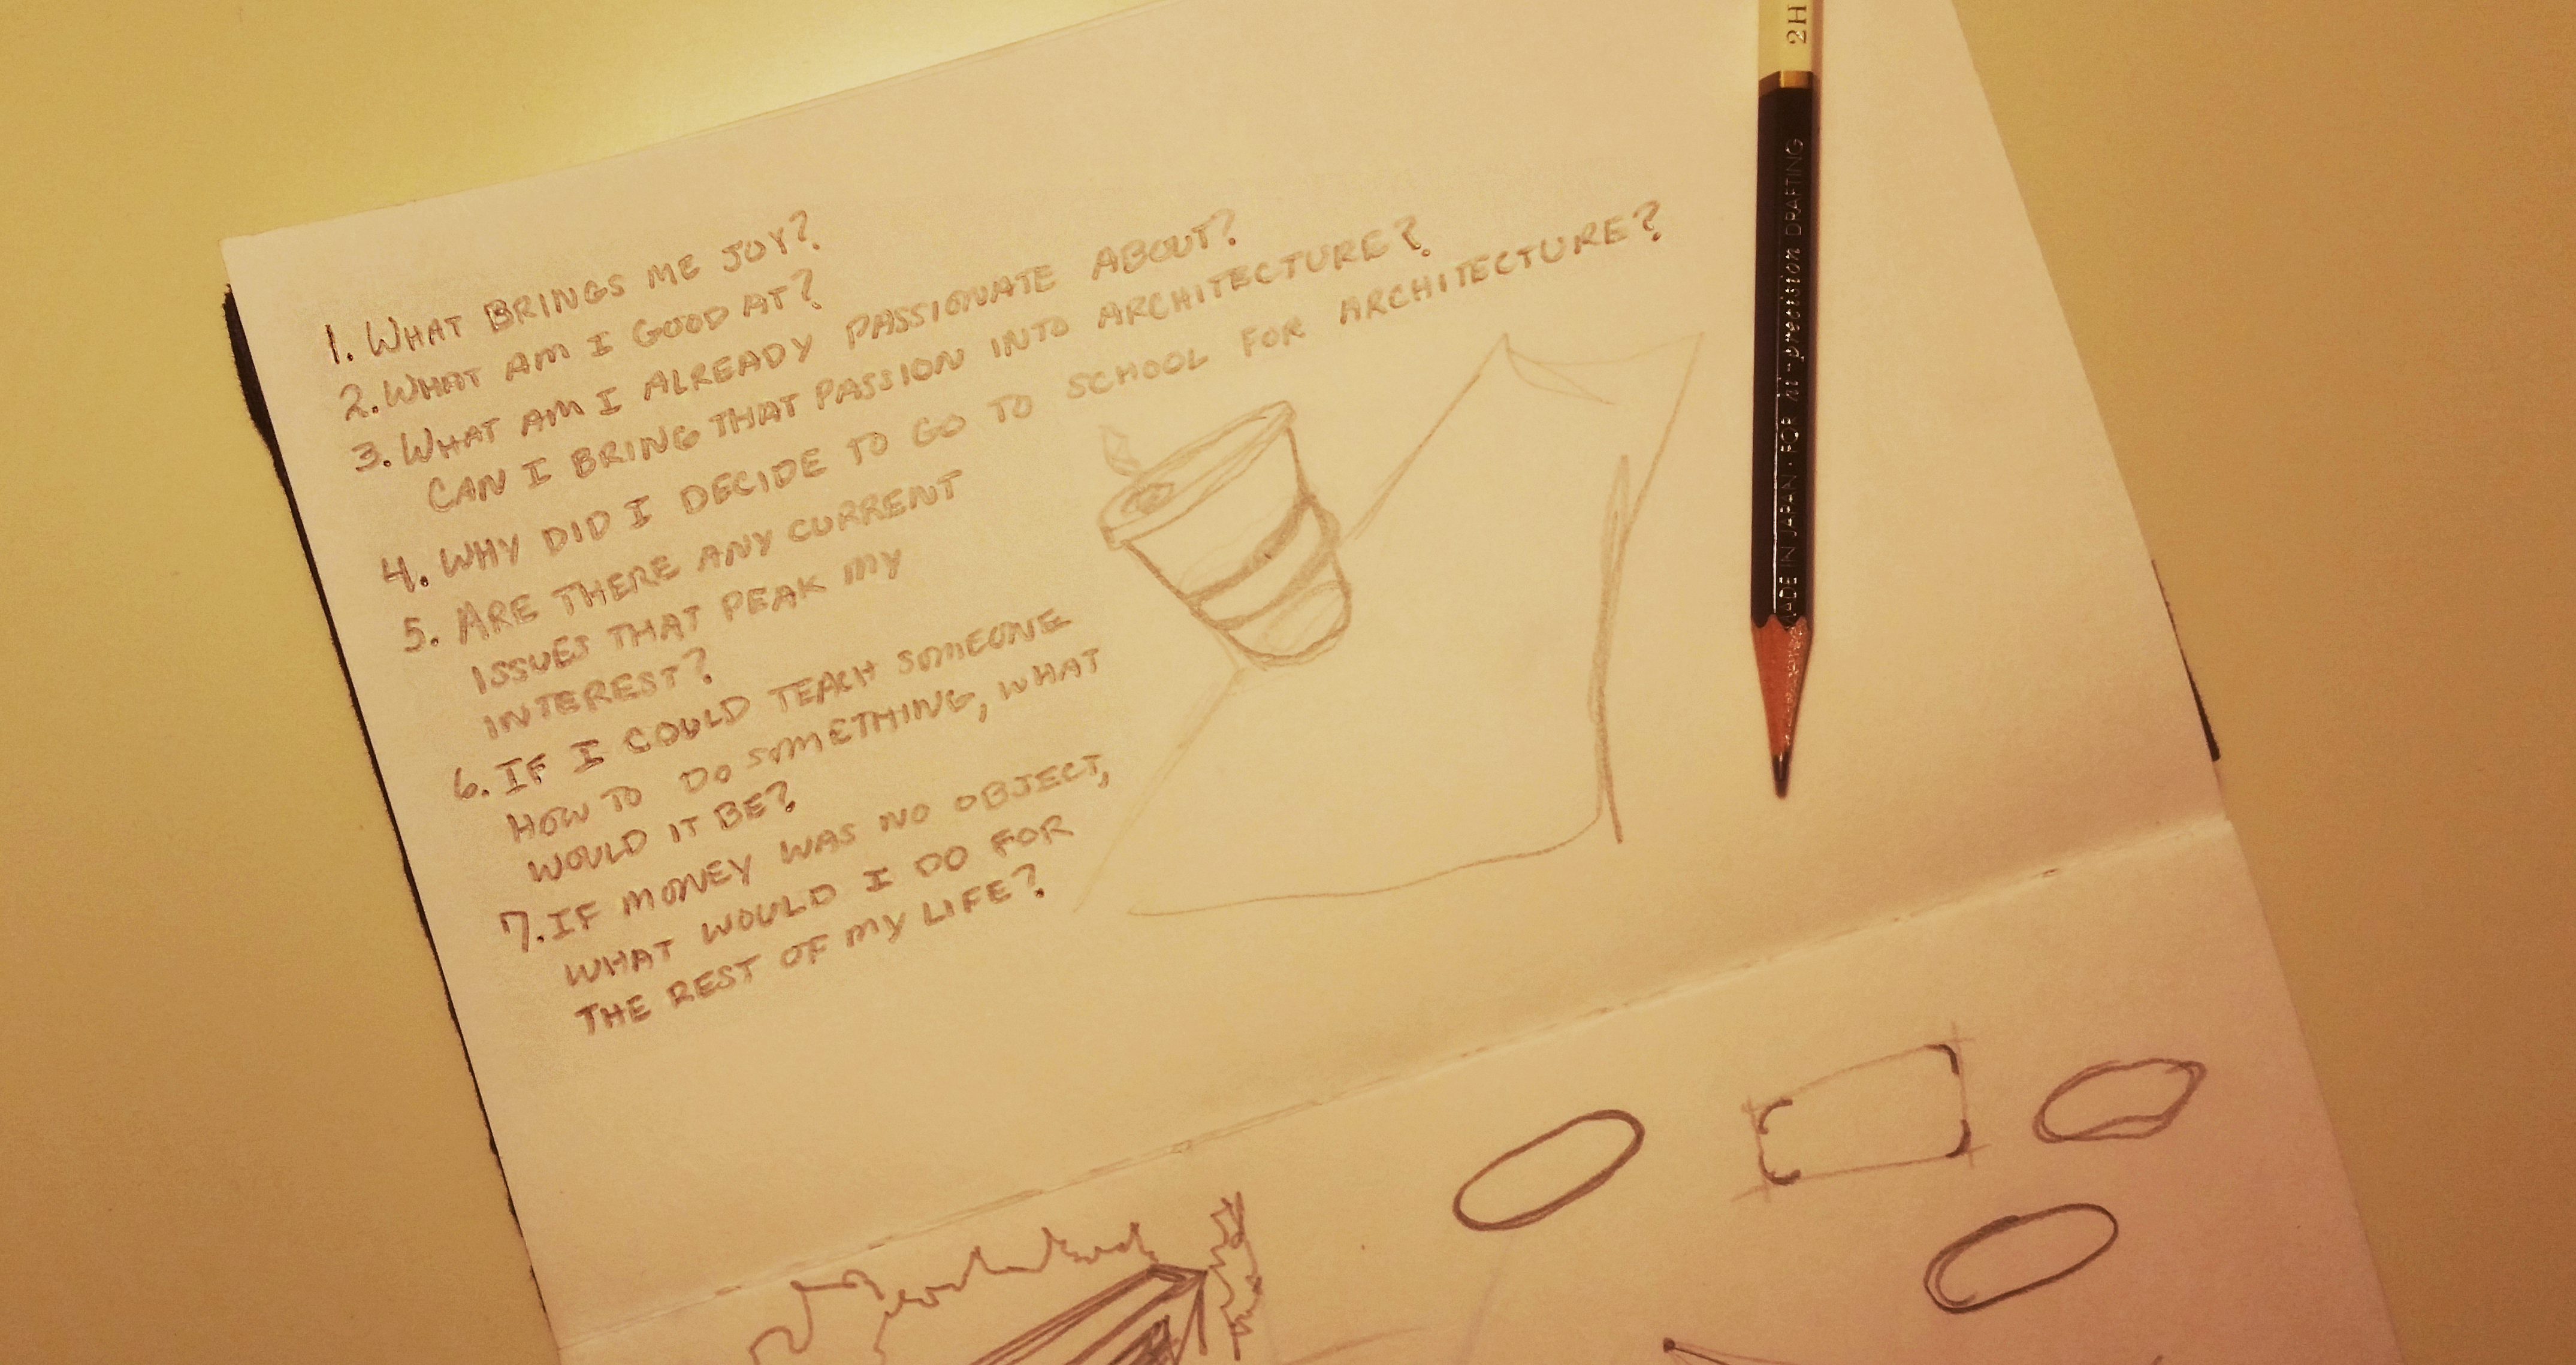 1. WHAT BRINGS ME JOY?
2. WHAT AM I GOOD AT?
3. WHAT AM I ALREADY PASSIONATE ABOUT?
CAN I BRING THAT PASSION INTO ARCHITECTURE?
4. WHY DID I DECIDE TO GO TO SCHOOL FOR ARCHITECTURE?
5. ARE THERE ANY CURRENT
ISSUES THAT PEAK MY
INTEREST?
6. IF I COULD TEACH SOMEONE
HOW TO DO SOMETHING, WHAT
WOULD IT BE?
7. IF MONEY WAS NO OBJECT,
WHAT WOULD I DO FOR
THE REST OF MY LIFE?
ADE IN JAPAN · FOR hi-precision DRAFTING 2H